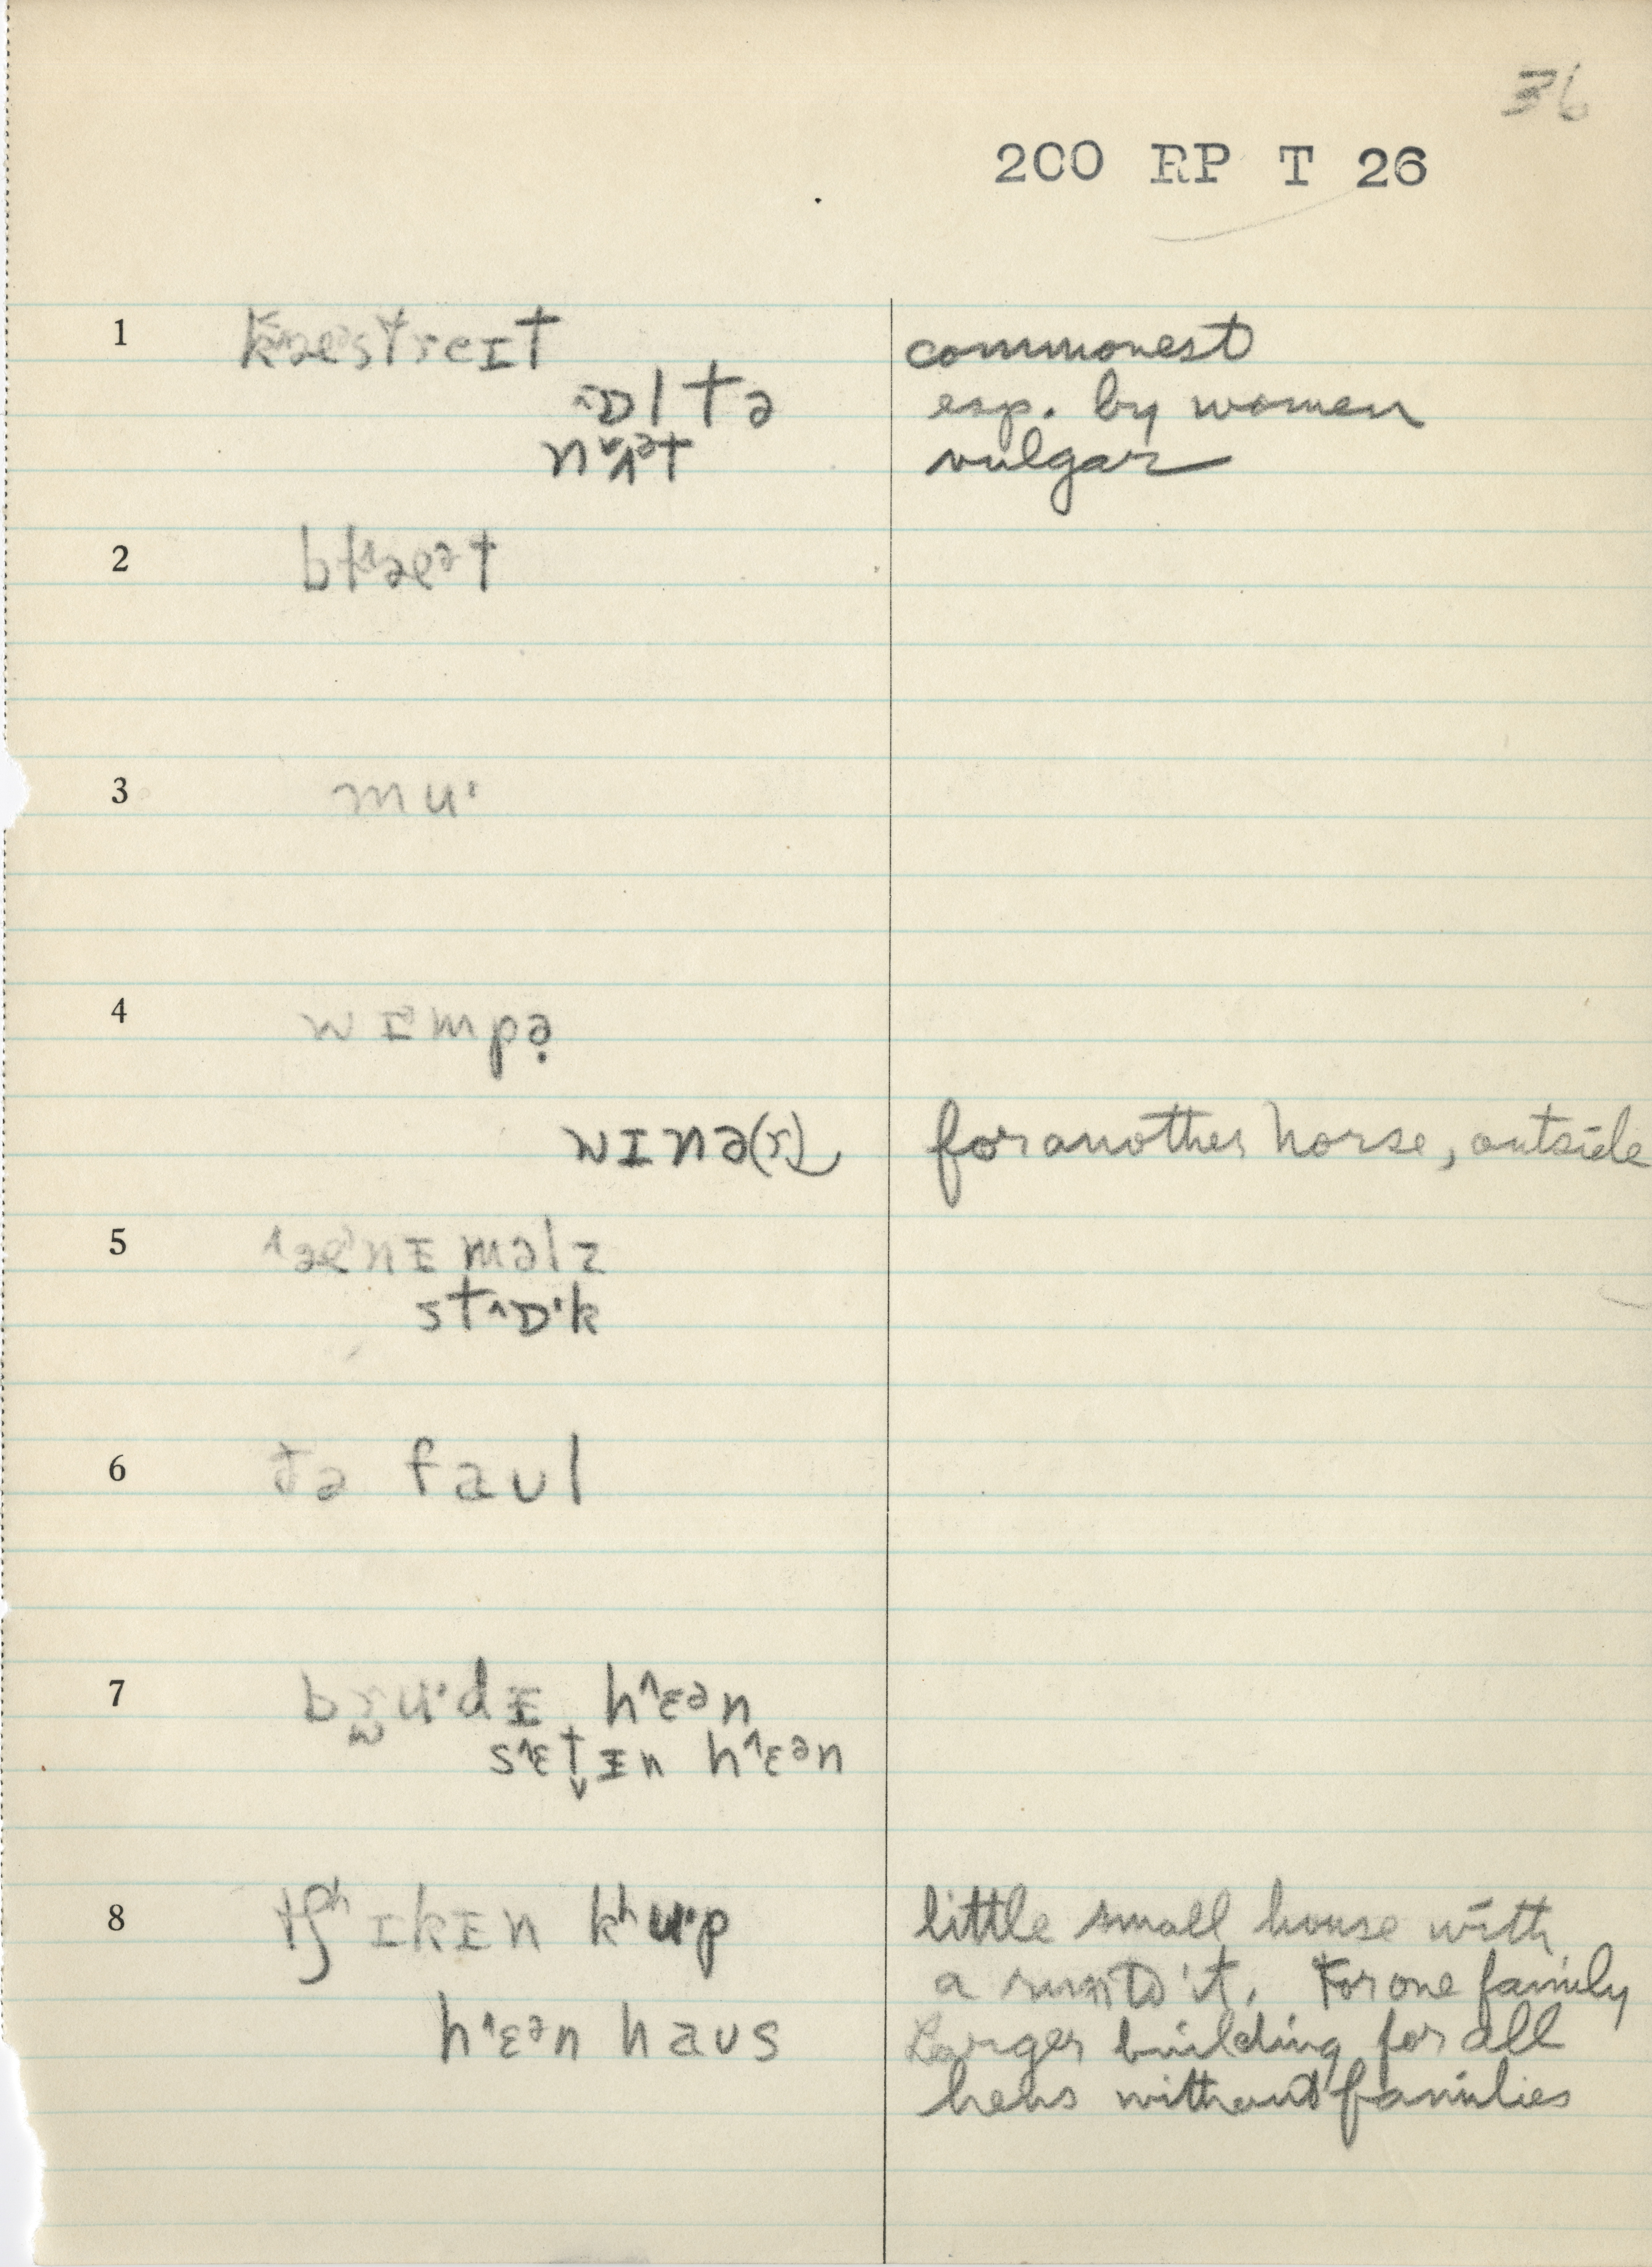 36
200 RP T 26
1 kæəstreɪt commonest
ɒltə esp. by women
nʌət vulgar
2 blæət
3 mu·
4 wɪmpə̣
wɪnə(r) for another horse, outside
5 æᵊnɪməlz
stɒ·k
6 ðə faʊl
7 bru·dɪ hɛən
sɛtɪn hɛən
8 tʃʰɪkɪn kʰu·p little small house with
a run to it. For one family
hɛən haʊs Larger building for all
hens without families